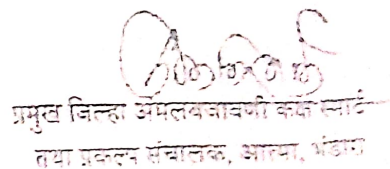 प्रमुख जिल्हा अंमलबजावणी कक्ष स्मार्ट
तथा प्रकल्प संचालक, आत्मा, भंडारा